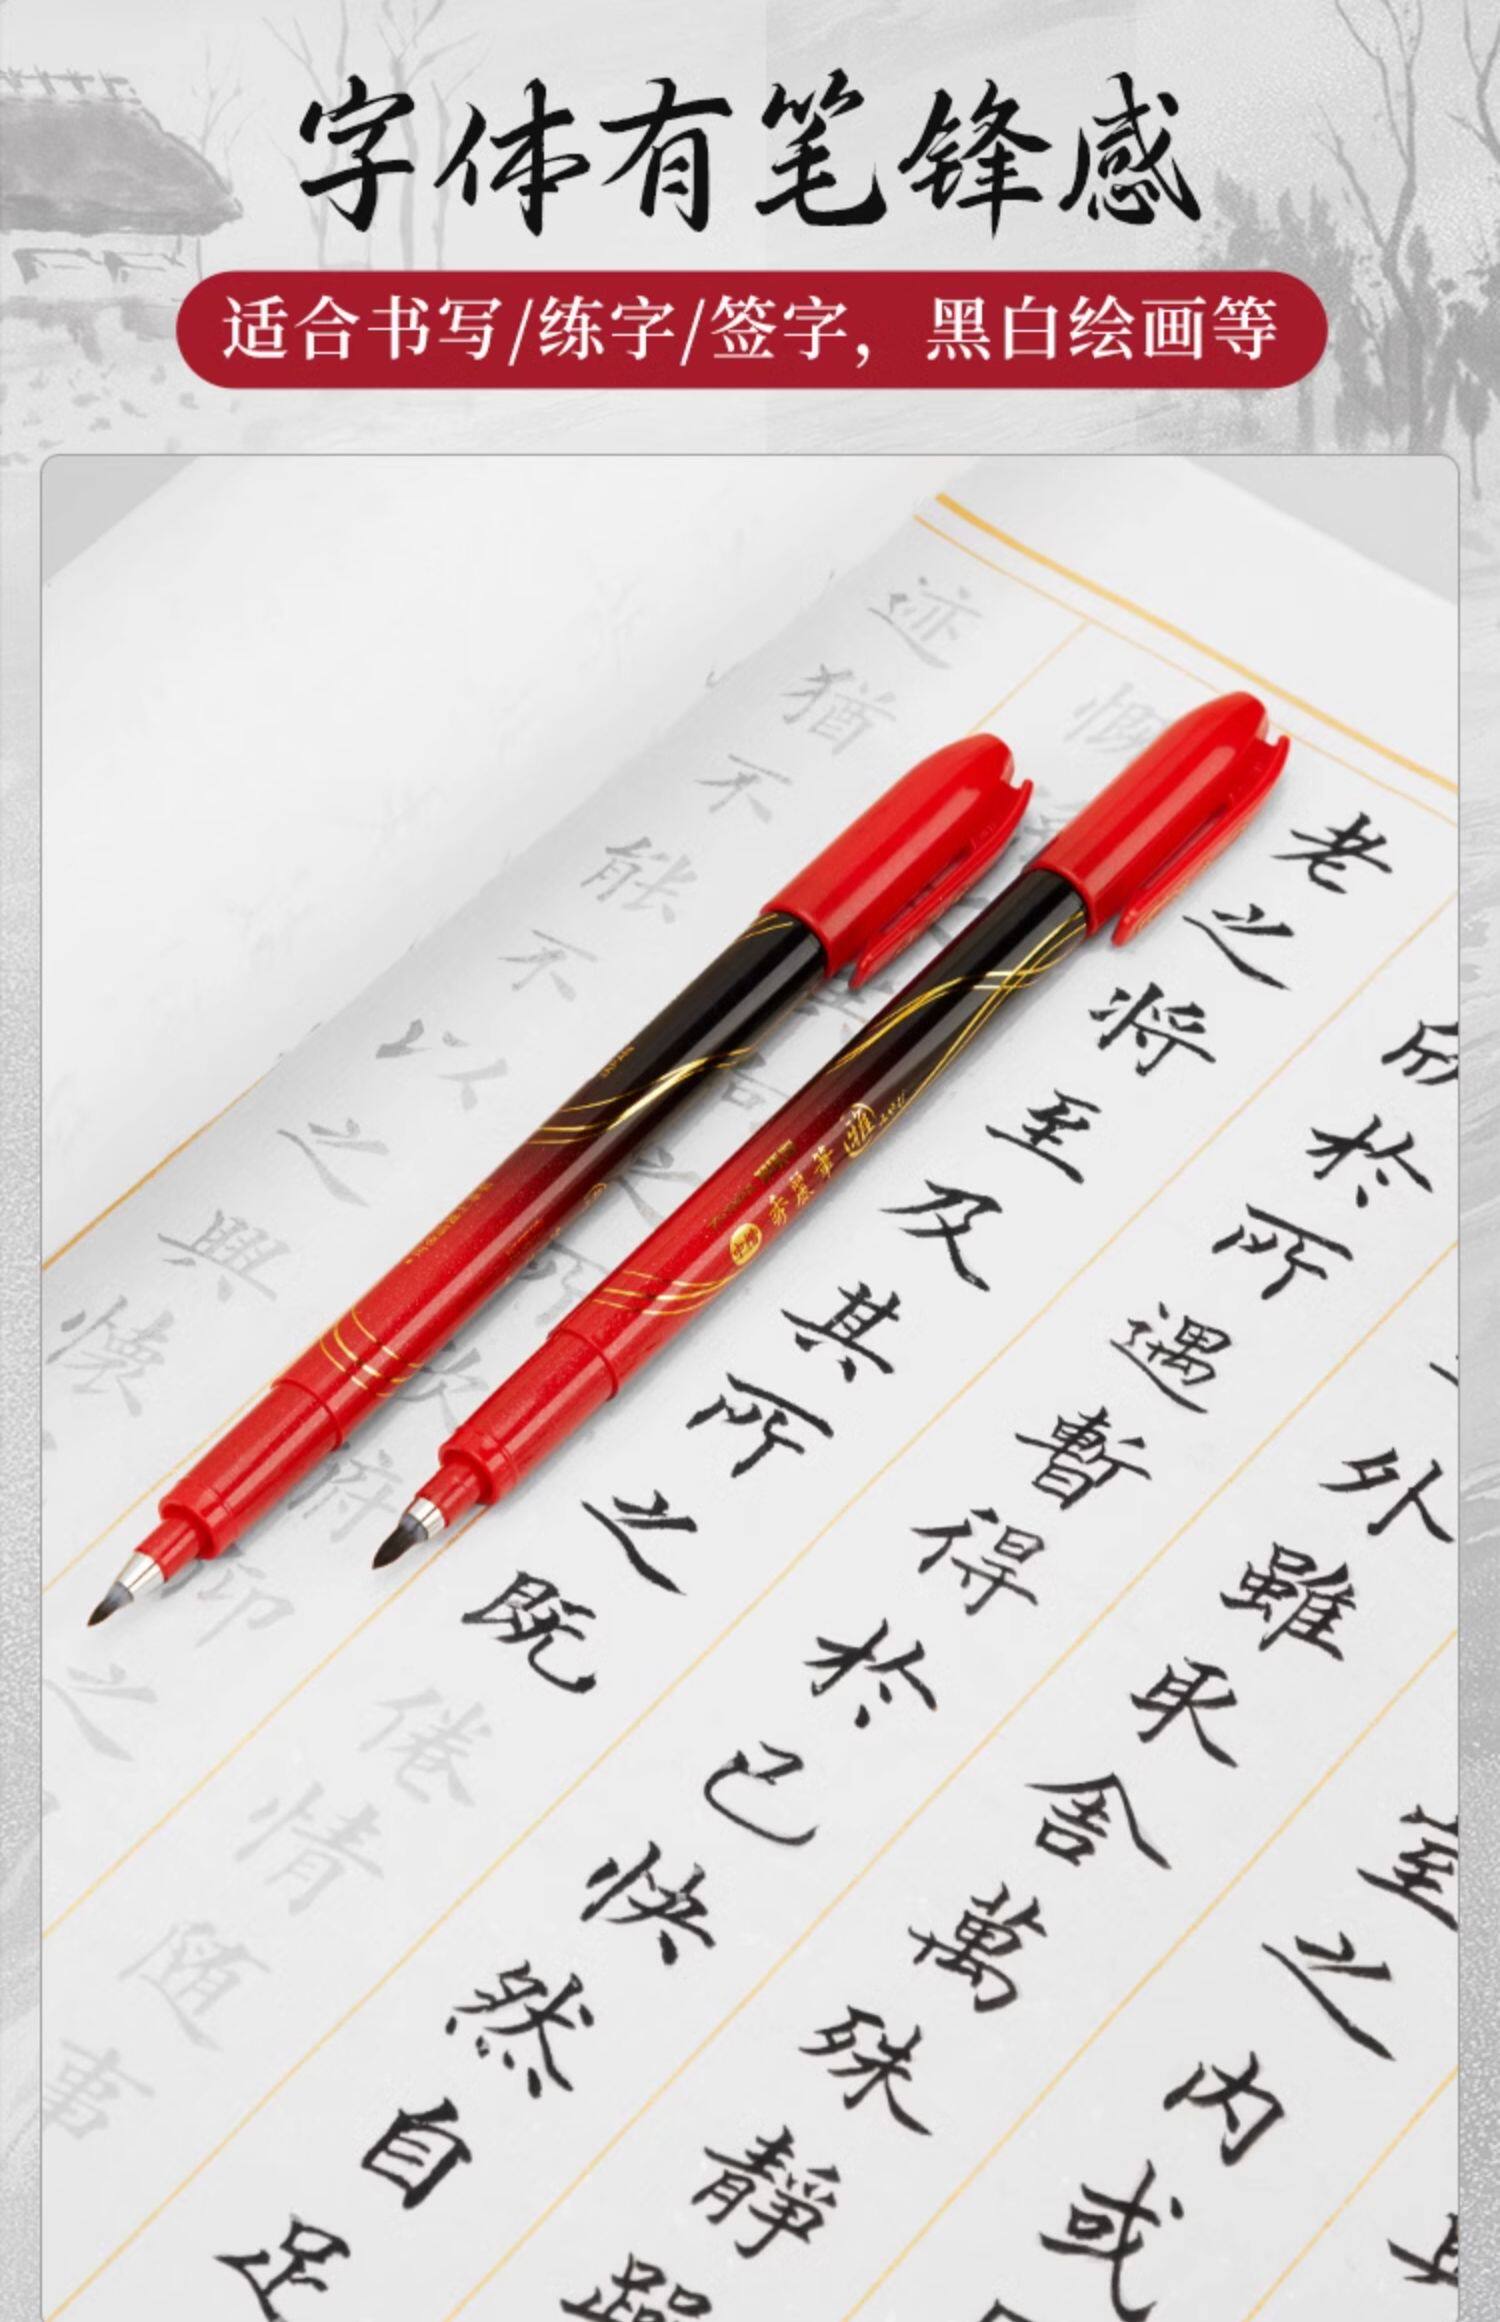 字体有笔锋感
适合书写/练字/签字，黑白绘画等
室之内或
外雖取舎萬殊靜躁
欣於所遇暫得於己快然自足
老之将至及其所之既倦情随事
迹猶不能不以之興懷
秀麗筆
雅
中楷